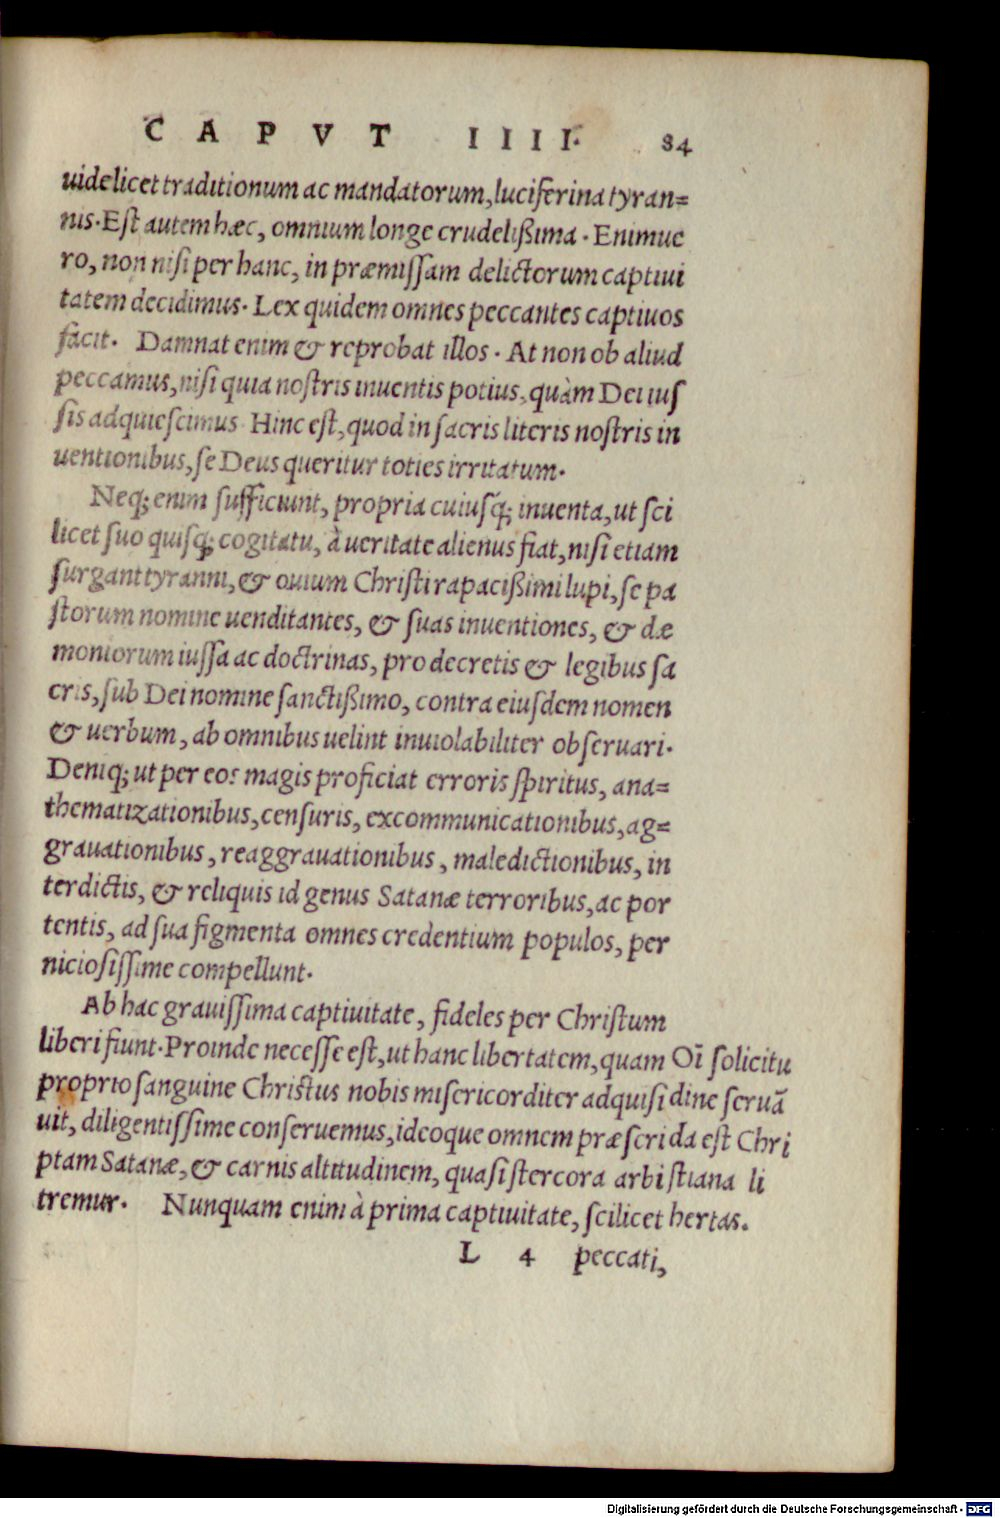 CAPVT IIII. 84
uidelicet traditionum ac mandatorum, luciferina tyran=
nis. Est autem hæc, omnium longe crudelißima. Enimue
ro, non nisi per hanc, in præmissam delictorum captiui
tatem decidimus. Lex quidem omnes peccantes captiuos
facit. Damnat enim & reprobat illos. At non ob aliud
peccamus, nisi quia nostris inuentis potius, quàm Dei ius
sis adquiescimus Hinc est, quod in sacris literis nostris in
uentionibus, se Deus queritur toties irritatum.
Neq; enim sufficiunt, propria cuiusq́; inuenta, ut sci
licet suo quisq; cogitatu, à ueritate alienus fiat, nisi etiam
surgant tyranni, & ouium Christi rapacißimi lupi, se pa
storum nomine uenditantes, & suas inuentiones, & dæ
moniorum iussa ac doctrinas, pro decretis & legibus sa
cris, sub Dei nomine sanctißimo, contra eiusdem nomen
& uerbum, ab omnibus uelint inuiolabiliter obseruari.
Deniq; ut per eos magis proficiat erroris spiritus, ana=
thematizationibus, censuris, excommunicationibus, ag=
grauationibus, reaggrauationibus, maledictionibus, in
terdictis, & reliquis id genus Satanæ terroribus, ac por
tentis, ad sua figmenta omnes credentium populos, per
niciosissime compellunt.
Ab hac grauissima captiuitate, fideles per Christum
liberi fiunt. Proinde necesse est, ut hanc libertatem, quam
proprio sanguine Christus nobis misericorditer adquisi
uit, diligentissime conseruemus, ideoque omnem præscri
ptam Satanæ, & carnis altitudinem, quasi stercora arbi
tremur. Nunquam enim à prima captiuitate, scilicet
Oī solicitu
dine seruā
da est Chri
stiana li
hertas.
L 4 peccati,
Digitalisierung gefördert durch die Deutsche Forschungsgemeinschaft - DFG